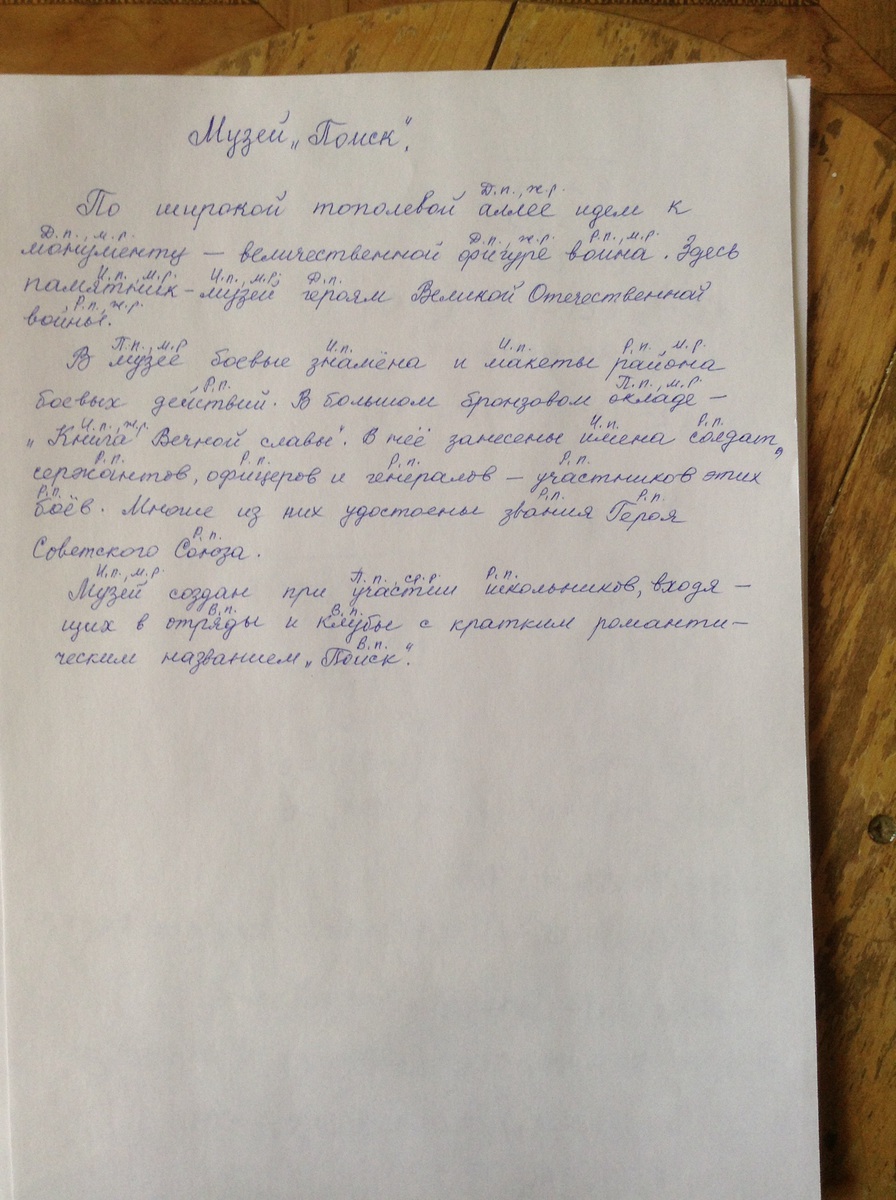 Музей „Поиск“.
Д.п., ж.р.
По широкой тополевой аллее идем к
Д.п., м.р. Д.п., ж.р. Р.п., м.р.
монументу — величественной фигуре воина. Здесь
И.п., м.р. И.п., м.р. Д.п.
памятник-музей героям Великой Отечественной
Р.п., ж.р.
войны.
П.п., м.р И.п. И.п. Р.п. м.р.
В музее боевые знамёна и макеты района
Р.п. П.п., м.р.
боевых действий. В большом бронзовом окладе —
И.п., ж.р. И.п. Р.п.
„Книга Вечной славы“. В неё занесены имена солдат,
Р.п. Р.п. Р.п. Р.п.
сержантов, офицеров и генералов — участников этих
Р.п. Р.п. Р.п.
боёв. Многие из них удостоены звания Героя
Р.п.
Советского Союза.
И.п., м.р. П.п., ср.р. Р.п.
Музей создан при участии школьников, входя-
В.п. В.п.
щих в отряды и клубы с кратким романти-
В.п.
ческим названием „Поиск“.